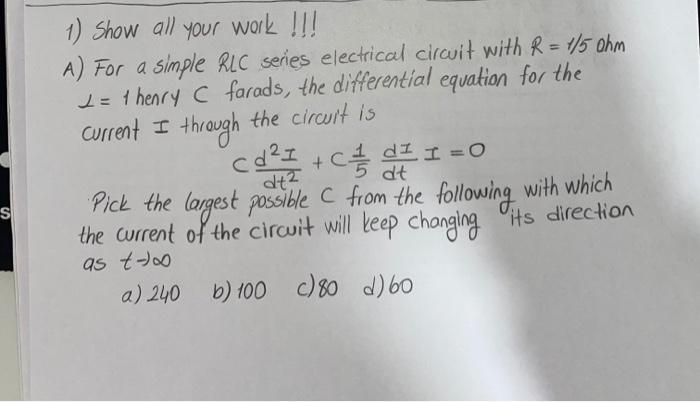 1) Show all your work !!!
A) For a simple RLC series electrical circuit with R = 1/5 Ohm
L = 1 henry C farads, the differential equation for the
current I through the circuit is
C d²I/dt² + C 1/5 dI/dt I = 0
Pick the largest possible C from the following with which
the current of the circuit will keep changing its direction
as t→∞
a) 240 b) 100 c) 80 d) 60
S